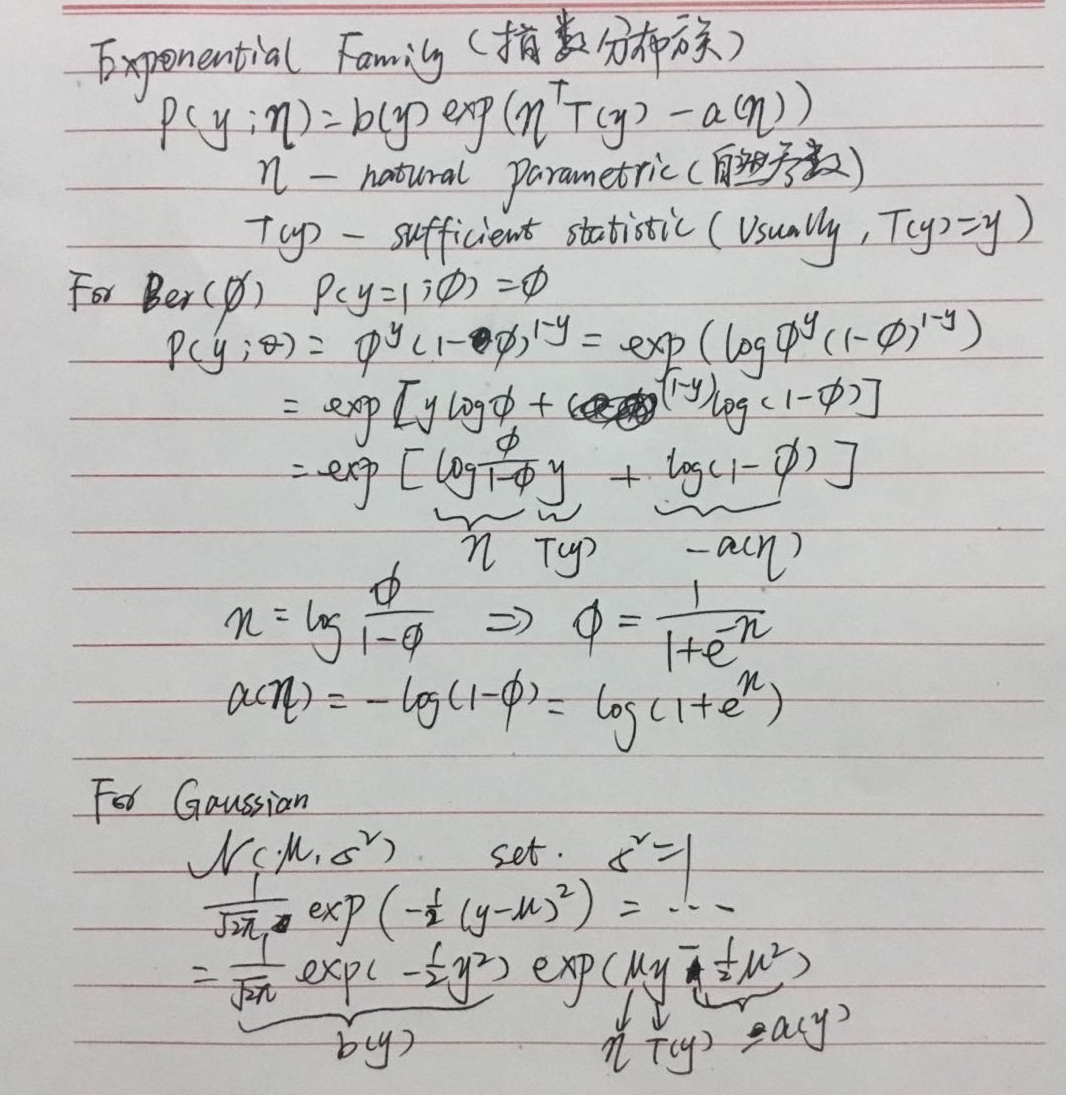 Exponential Family (指数分布族)
P(y;η)=b(y) exp(η^T T(y) - a(η))
η - natural parametric (自然参数)
T(y) - sufficient statistic (Usually, T(y)=y)
For Ber(φ) P(y=1;φ)=φ
P(y;θ) = φ^y (1-φ)^{1-y} = exp(log φ^y (1-φ)^{1-y})
= exp[y log φ + (1-y) log(1-φ)]
= exp[log φ/(1-φ) y + log(1-φ)]
η T(y) -a(η)
η = log φ/(1-φ) ⇒ φ = 1/(1+e^{-η})
a(η) = -log(1-φ) = log(1+e^η)
For Gaussian
N(μ,σ²) set. σ²=1
1/√2π exp(-1/2 (y-μ)²) = ...
= 1/√2π exp(-1/2 y²) exp(μy - 1/2 μ²)
b(y) η T(y) -a(y)